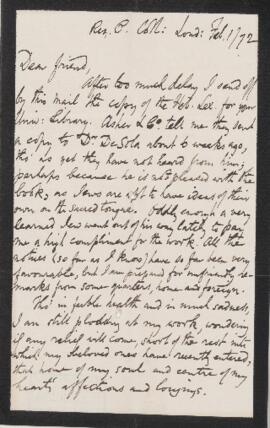 Rez. P. Coll: Lond: Feb. 1/72
Dear friend,
After too much delay I send off
by this mail the copy of the Heb. Lex. for your
Univ: Library. Asher & Co. tell me they sent
a copy to Dr. DeSola about 6 weeks ago,
tho' as yet they have not heard from him;
perhaps because he is not pleased with the
book, as Jews are apt to have ideas of their
own on the sacred tongue. Oddly enough a very
learned Jew went out of his way lately to pay
me a high compliment for the work. All the
notices (so far as I know) have so far been very
favourable, but I am prepared for unfriendly re-
marks from some quarters, home and foreign.
Tho' in feeble health and in much sadness,
I am still plodding at my work, wondering
if any relief will come, short of the rest into
which my beloved ones have recently entered,
that home of my soul and centre of my
heart's affections and longings.